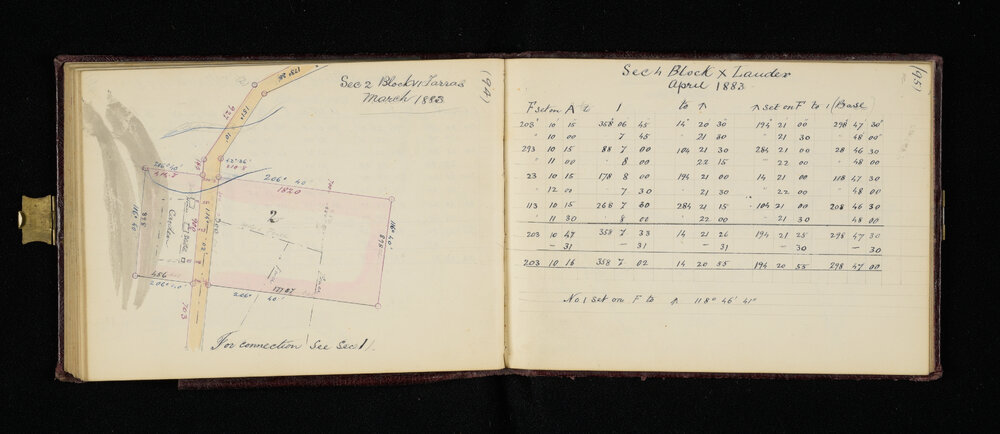 (94)
Sec 2 Block VI Tarras
March 1883
206° 40'
1520
2
898
116° 40
Garden
456
206° 40'
206° 40'
703
For connection See Sec 1/.
(95)
Sec 4 Block X Lauder
April 1883
F set on A to 1 to ↑ ↑ set on F to 1 (Base)
203° 10 15 358° 06 45 14° 20 30 194° 21 00 298° 47 30"
" 10 00 " 7 45 " 21 30 " 21 30 " 48 00"
293 10 15 88 7 00 104 21 30 284 21 00 28 46 30
" 11 00 " 8 00 " 22 15 " 22 00 " 48 00
23 10 15 178 8 00 194 21 00 14 21 00 118 47 30
" 12 00 " 7 30 " 21 30 " 22 00 " 48 00
113 10 15 268 7 30 284 21 15 104 21 00 208 46 30
" 11 30 " 8 00 " 22 00 " 21 30 48 00
203 10 47 358 7 33 14 21 26 194 21 25 298 47 30
— 31 — 31 — 31 — 30 — 30
203 10 16 358 7 02 14 20 55 194 20 55 298 47 00
No 1 set on F to ↑ 118° 46' 41"